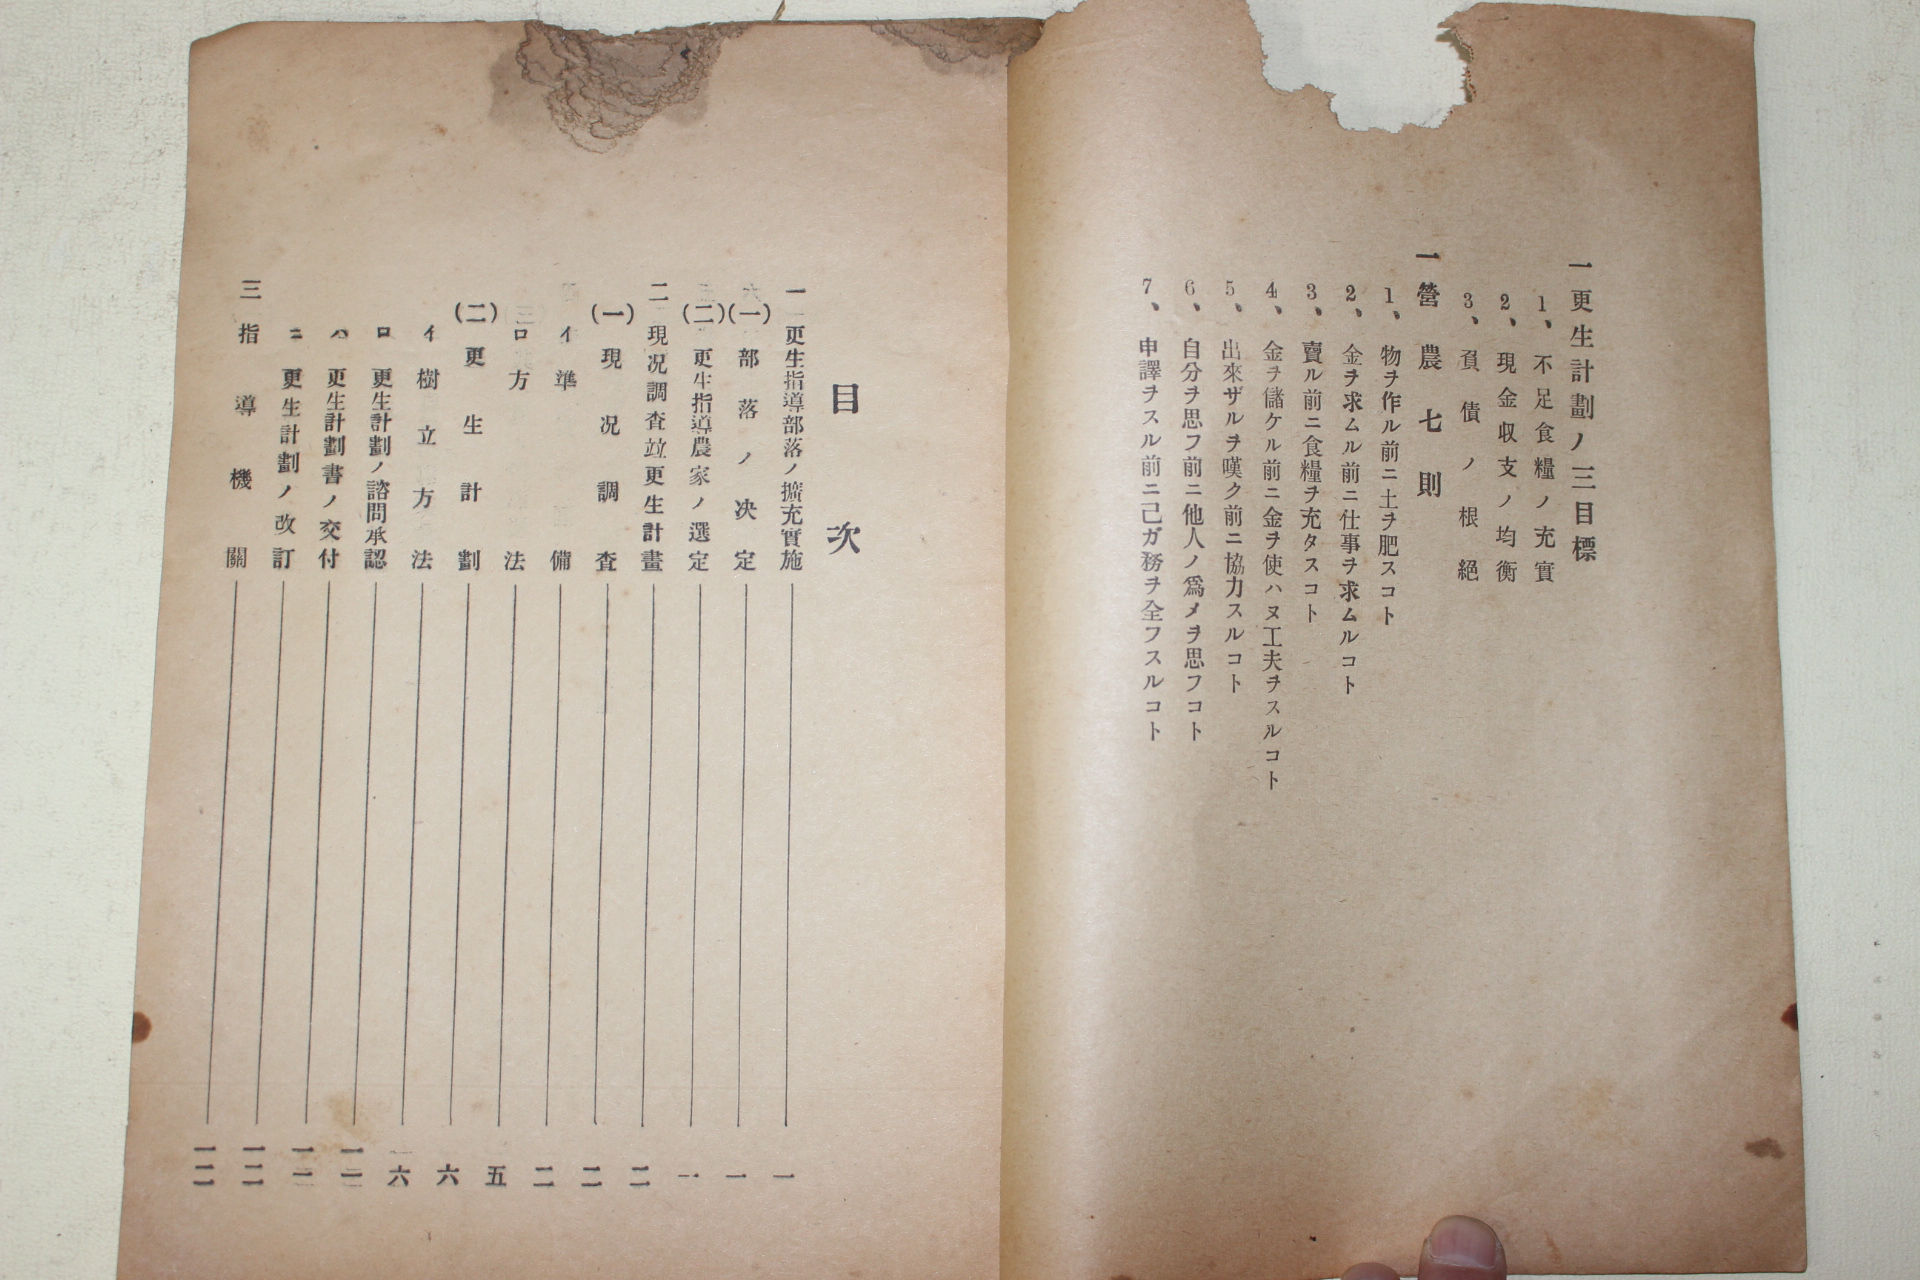 一 更生計劃ノ三目標
1、不足食糧ノ充實
2、現金収支ノ均衡
3、負債ノ根絕
一 營農七則
1、物ヲ作ル前ニ土ヲ肥スコト
2、金ヲ求ムル前ニ仕事ヲ求ムルコト
3、賣ル前ニ食糧ヲ充タスコト
4、金ヲ儲ケル前ニ金ヲ使ハヌ工夫ヲスルコト
5、出來ザルヲ嘆ク前ニ協力スルコト
6、自分ヲ思フ前ニ他人ノ爲メヲ思フコト
7、申譯ヲスル前ニ己ガ務ヲ全フスルコト
目次
一 更生指導部落ノ擴充實施 一
(一) 部落ノ决定 一
(二) 更生指導農家ノ選定 一
二 現况調査竝更生計畫 二
(一) 現况調査 二
イ 準備 二
ロ 方法 五
(二) 更生計劃 六
イ 樹立方法 六
ロ 更生計劃ノ諮問承認
ハ 更生計劃書ノ交付
ニ 更生計劃ノ改訂 一二
三 指導機關 一二